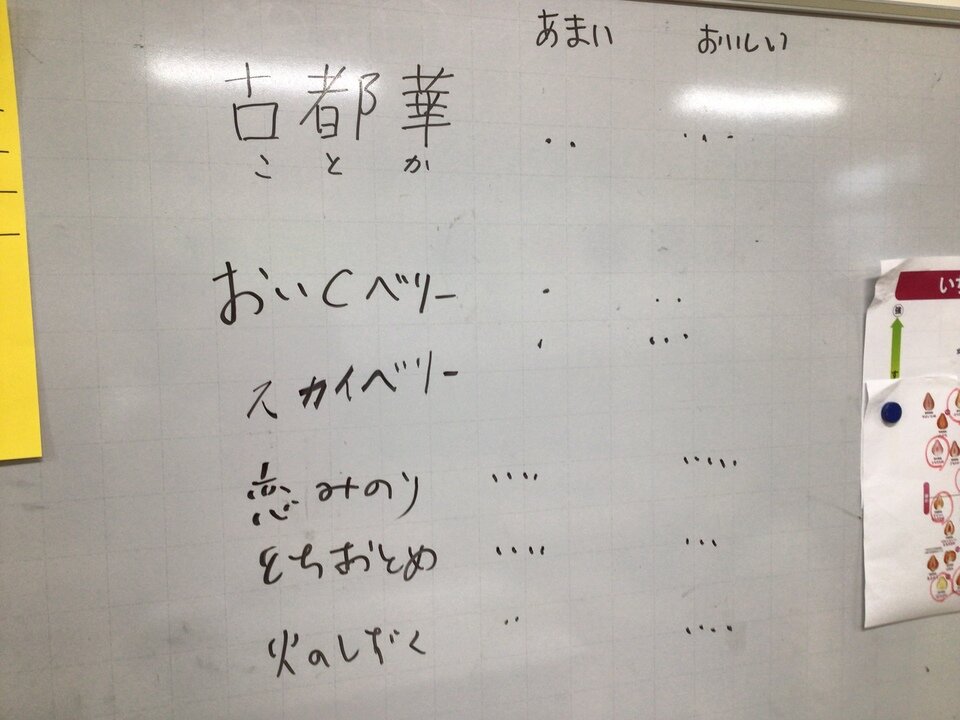 あまい おいしい
古都華
ことか
おいCベリー
スカイベリー
恋みのり
とちおとめ
火のしずく
い